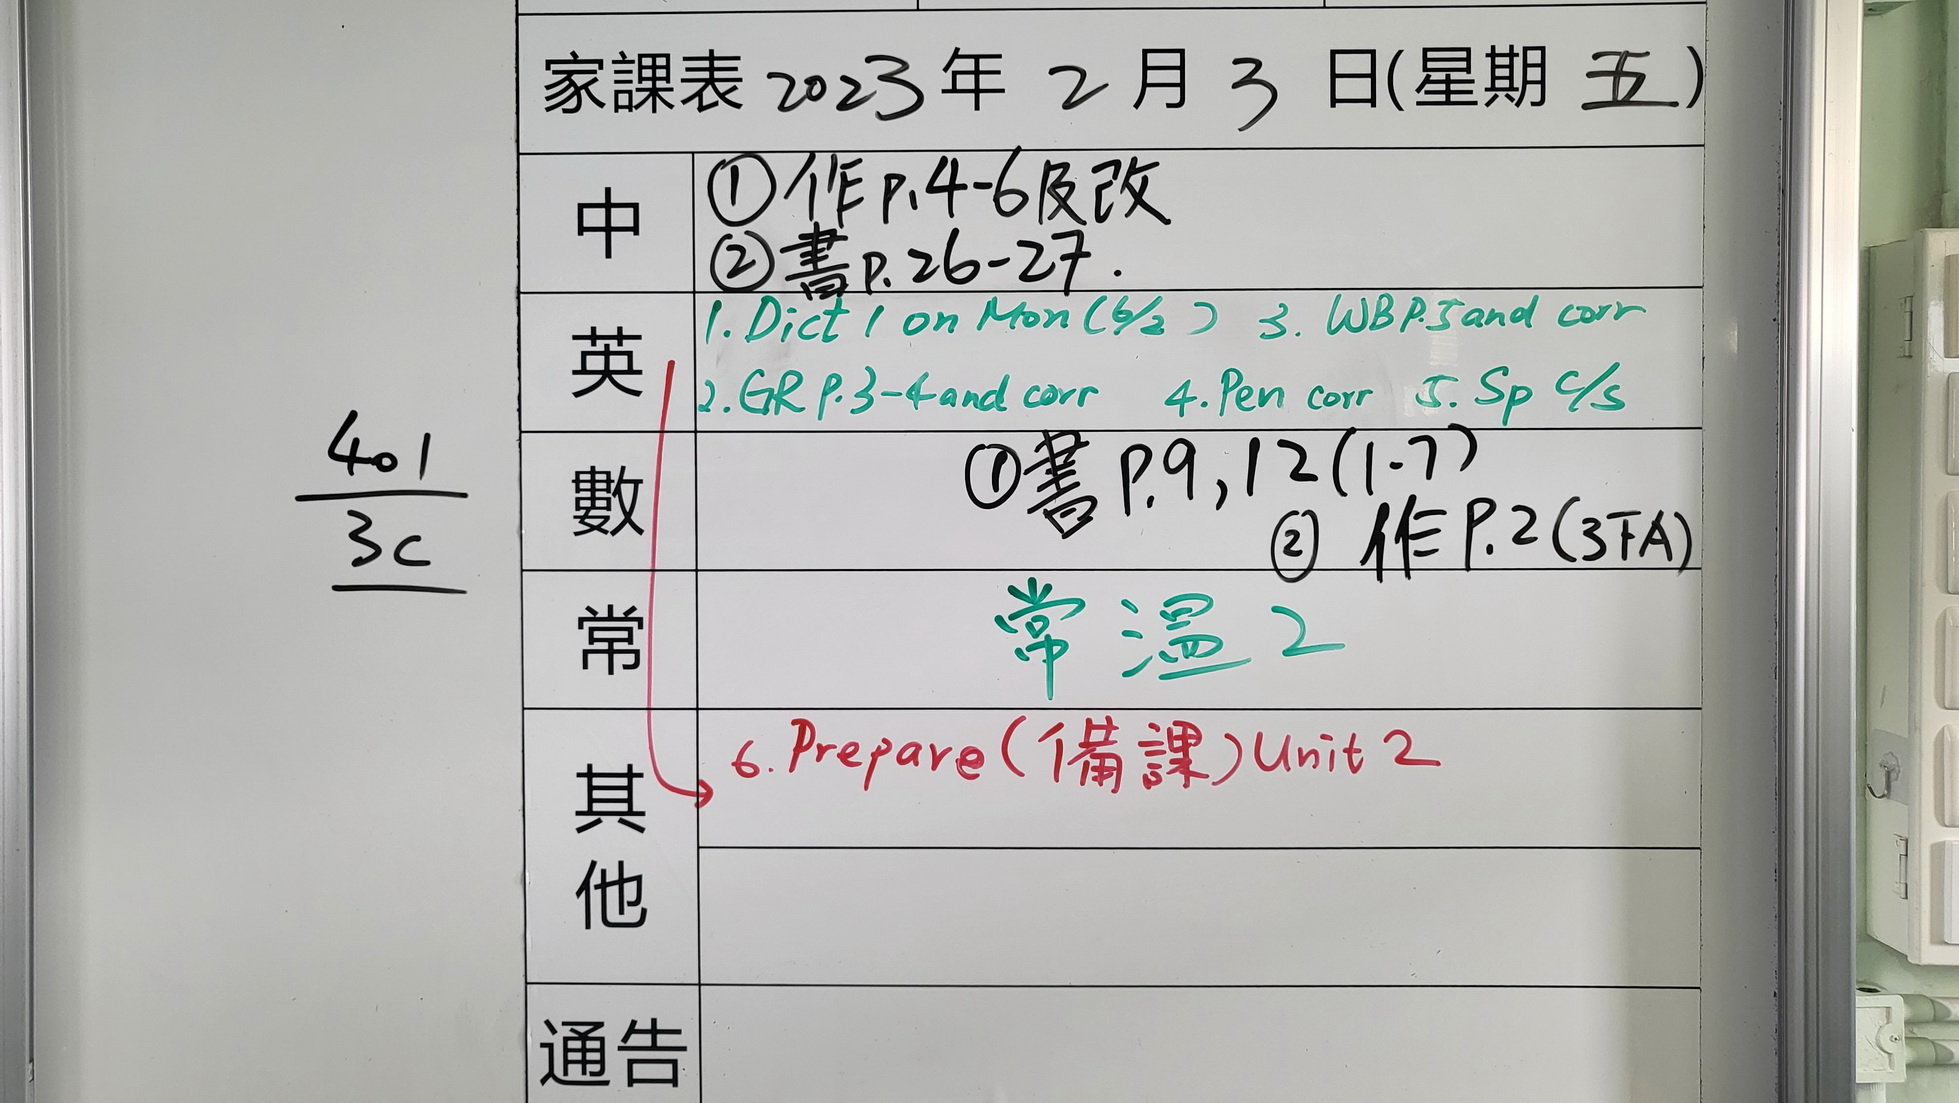 家課表 2023 年 2 月 3 日(星期 五)
中
①作 P.4-6及改
②書 P.26-27.
英
1. Dict 1 on Mon (6/2) 3. WB P.5 and corr
2. GR P.3-4 and corr 4. Pen corr 5. Sp c/s
數
①書 P.9, 12 (1-7)
② 作 P.2 (3下A)
401
3C
常
常溫2
其他
6. Prepare (備課) Unit 2
通告